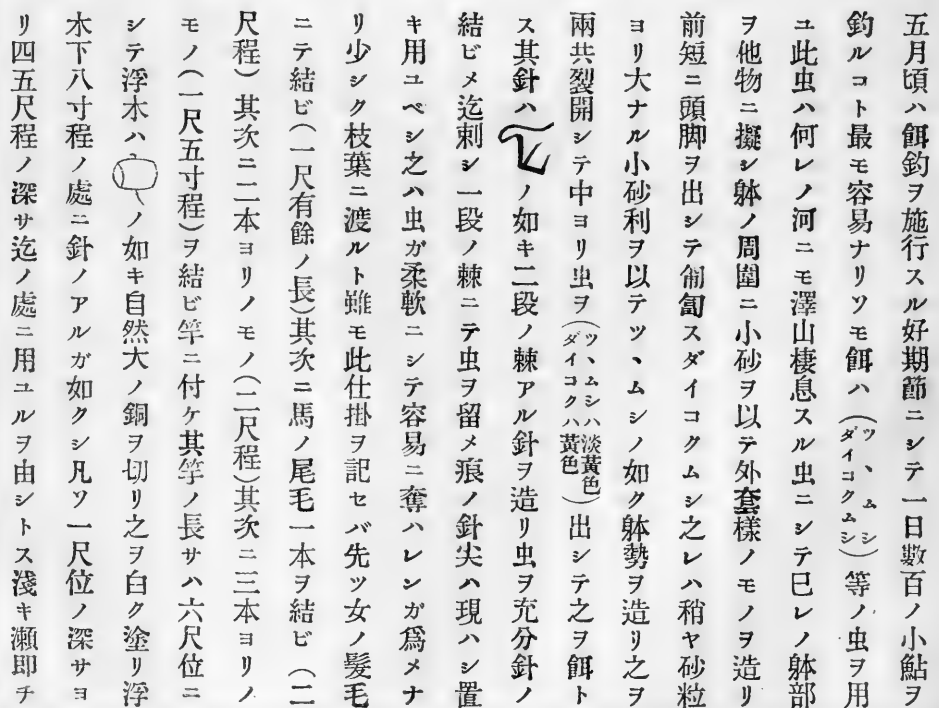 五月頃ハ餌釣ヲ施行スル好期節ニシテ一日數百ノ小鮎ヲ
釣ルコト最モ容易ナリソモ餌ハ(ツヽムシ ダイコクムシ)等ノ虫ヲ用
ユ此虫ハ何レノ河ニモ澤山棲息スル虫ニシテ巳レノ躰部
ヲ他物ニ擬シ躰ノ周圍ニ小砂ヲ以テ外套樣ノモノヲ造リ
前短ニ頭脚ヲ出シテ匍匐スダイコクムシ之レハ稍ヤ砂粒
ヨリ大ナル小砂利ヲ以テツヽムシノ如ク躰勢ヲ造リ之ヲ
兩共裂開シテ中ヨリ虫ヲ(ツヽムシハ淡黃色 ダイコクハ黃色)出シテ之ヲ餌ト
ス其針ハノ如キ二段ノ棘アル針ヲ造リ虫ヲ充分針ノ
結ビメ迄刺シ一段ノ棘ニテ虫ヲ留メ痕ノ針尖ハ現ハシ置
キ用ユベシ之ハ虫ガ柔軟ニシテ容易ニ奪ハレンガ爲メナ
リ少シク枝葉ニ渡ルト雖モ此仕掛ヲ記セバ先ツ女ノ髮毛
ニテ結ビ(一尺有餘ノ長)其次ニ馬ノ尾毛一本ヲ結ビ(二
尺程)其次ニ二本ヨリノモノ(二尺程)其次ニ三本ヨリノ
モノ(一尺五寸程)ヲ結ビ竿ニ付ケ其竿ノ長サハ六尺位ニ
シテ浮木ハノ如キ自然大ノ銅ヲ切リ之ヲ白ク塗リ浮
木下八寸程ノ處ニ針ノアルガ如クシ凡ソ一尺位ノ深サヨ
リ四五尺程ノ深サ迄ノ處ニ用ユルヲ由シトス淺キ瀨即チ